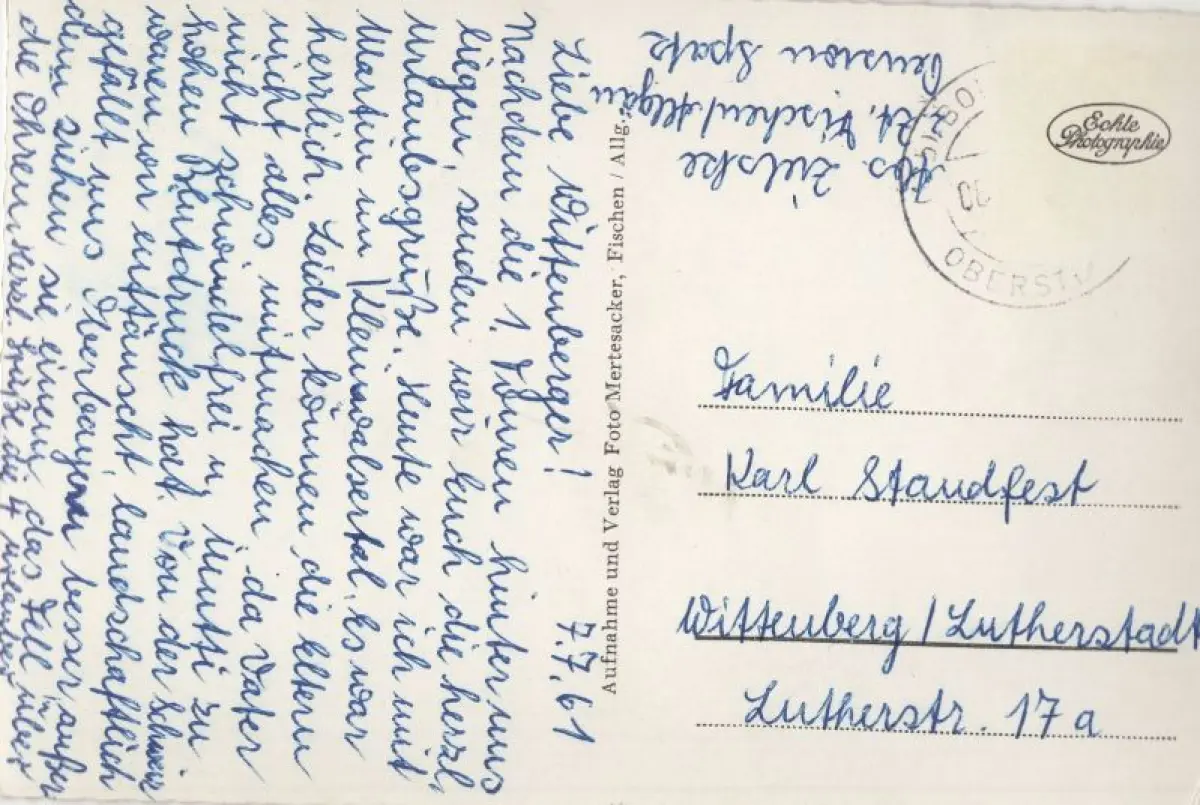 7.7.61
Liebe Wittenberger!
Nachdem die 1. Touren hinter uns
liegen, senden wir Euch die herzl.
Urlaubsgrüße. Heute war ich mit
Martin im Kleinwalsertal. Es war
herrlich. Leider können die Eltern
nicht alles mitmachen, da Vater
nicht schwindelfrei u. Mutti zu
hohen Blutdruck hat. Von der Schweiz
waren wir entäuscht landschaftlich
gefällt uns Oberbayern besser, außer
dem ziehen sie einem das Fell über
die Ohren. Herzl. Grüße die 4 Urlauber
Abs. Zielske
zt. Fischen/Allgäu
Pension Spatz
Echte
Photographie
OBERST
Aufnahme und Verlag Foto Mertesacker, Fischen / Allg.
Familie
Karl Standfest
Wittenberg/Lutherstadt
Lutherstr. 17a